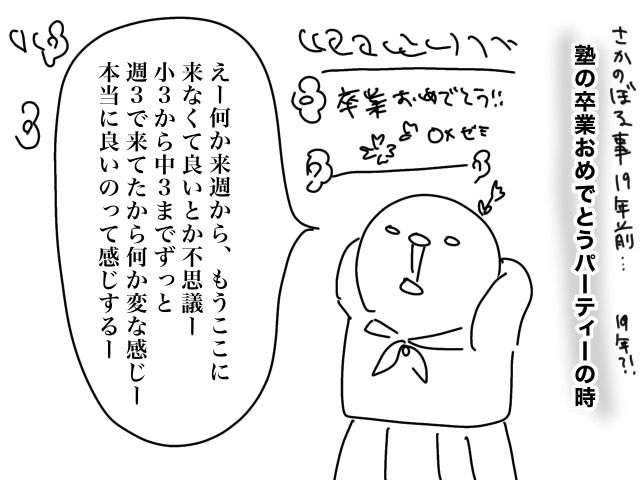 さかのぼる事19年前…
19年?!
塾の卒業おめでとうパーティーの時
卒業おめでとう!!
〇×ゼミ
えー何か来週から、もうここに
来なくて良いとか不思議ー
小3から中3までずっと
週3で来てたから何か変な感じー
本当に良いのって感じするー